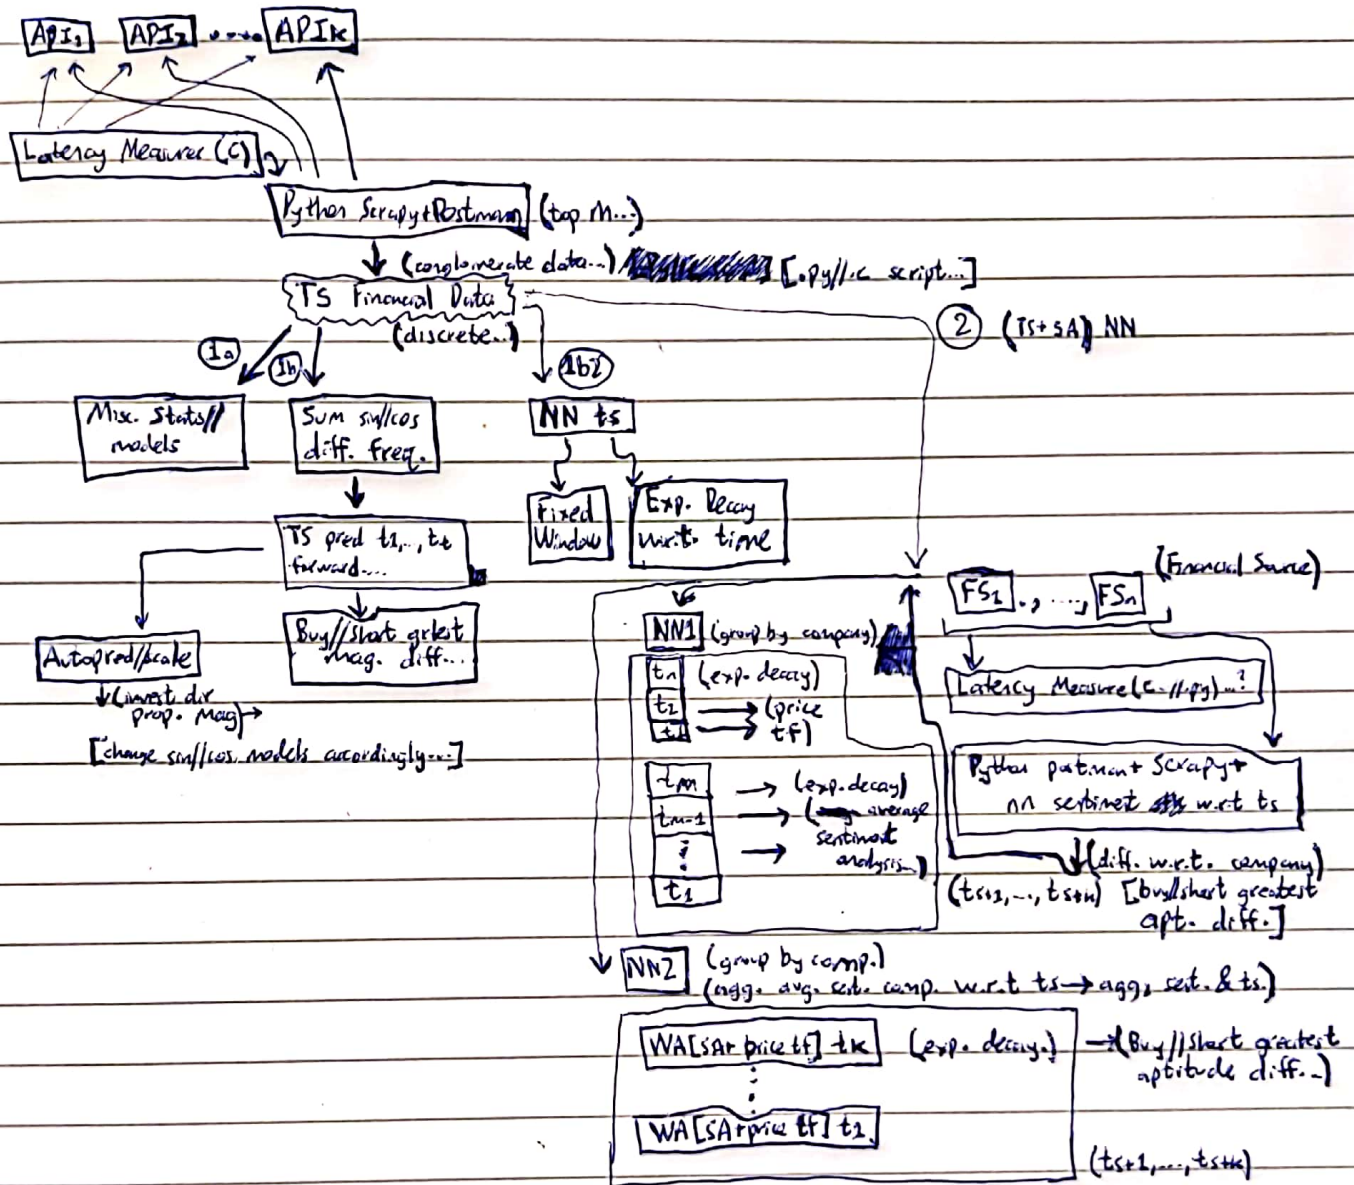 API1 API2 ..... APIk
Latency Measurer (C)
Python Scrapy+Postman (top M...)
(conglomerate data...) [.py//.c script...]
TS Financial Data
(discrete...)
2 (TS+SA) NN
1a 1b 1b2
Misc. Stats//
models
Sum sin//cos
diff. freq.
NN ts
Fixed
Window
Exp. Decay
w.r.t. time
TS pred t1,..,tt
forward....
Buy//short grtest
mag. diff...
Autopred//scale
(invest dir.
prop. Mag)
[change sin//cos. models accordingly...]
FS1 ., ...., FSn (Financial Source)
Latency Measure(C.//.py)...?
Python postman+ Scrapy+
nn sentimet w.r.t ts
(diff. w.r.t. company)
(ts+1,...,ts+n) [buy//short greatest
apt. diff.]
NN1 (group by company)
tn (exp. decay)
t2 (price
t1 tf)
tm (exp. decay)
tm-1 ( average
sentiment
analysis...)
t1
NN2 (group by comp.)
(agg. avg. sent. comp. w.r.t ts→agg, sent. & ts.)
WA[SA+price tf] tk (exp. decay.) →(Buy//short greatest
aptitude diff...)
WA[SA+price tf] t1
(ts+1,...,ts+k)